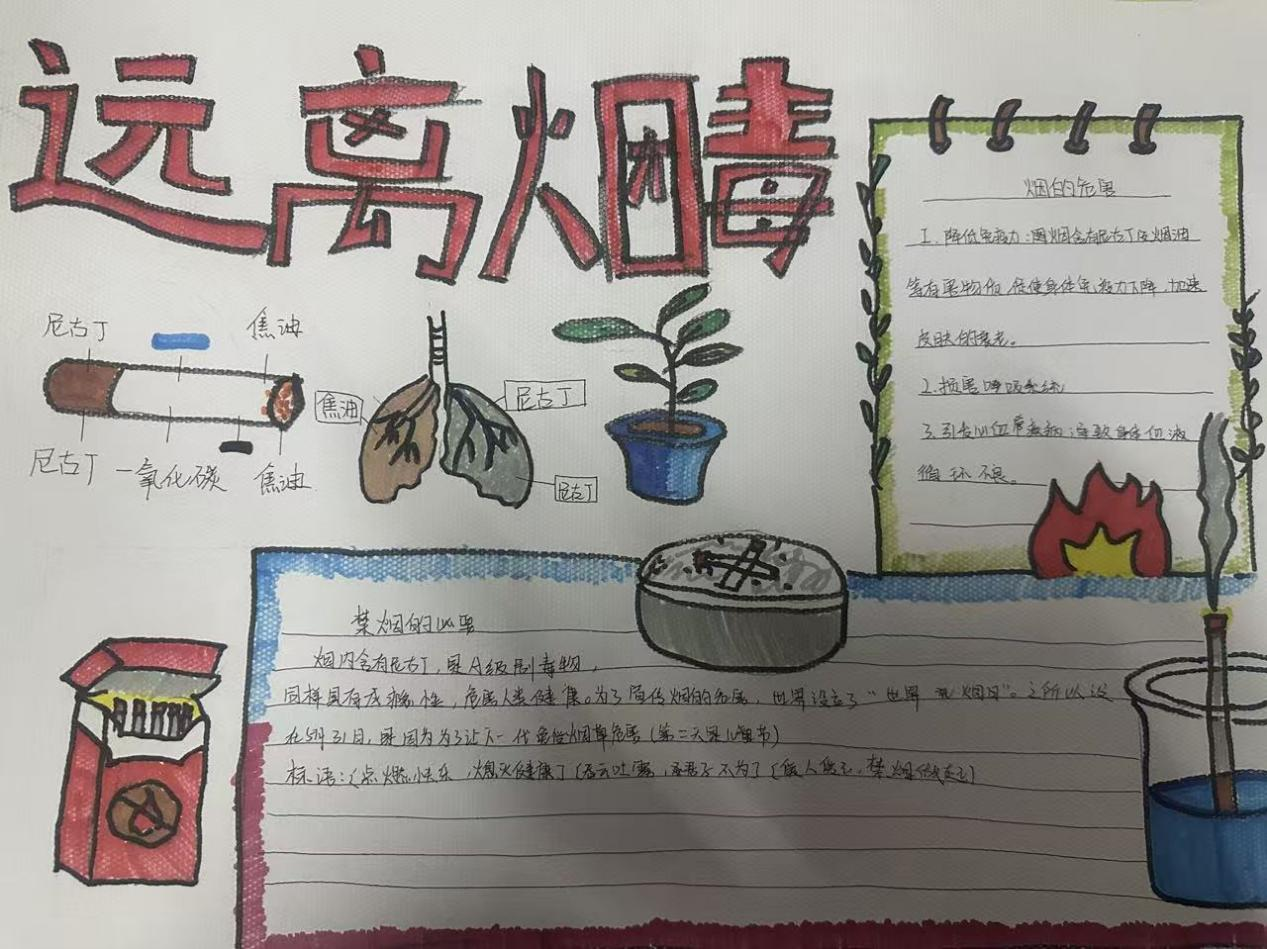 远离烟毒
尼古丁
焦油
尼古丁
一氧化碳
焦油
焦油
尼古丁
尼古丁
烟的危害
1.降低免疫力:因烟含有尼古丁及烟油
等有害物质,促使身体免疫力下降,加速
皮肤的衰老。
2.损害呼吸系统
3.引发心血管疾病,导致身体血液
循环不良。
禁烟的必要
烟内含有尼古丁,是A级副毒物,
同样具有成瘾性,危害人类健康。为了宣传烟的危害,世界设立了“世界无烟日”。之所以设
在5月31日,是因为为了让下一代免受烟草危害(第二天是儿童节)
标语:[点燃快乐,熄灭健康][吞云吐雾,